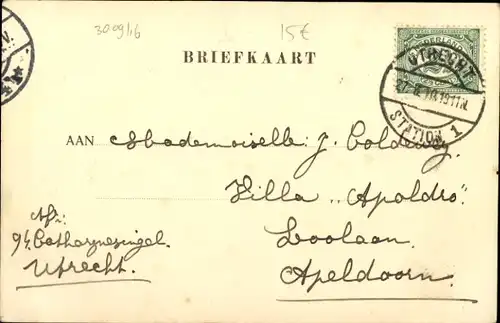 3009/16
15€
BRIEFKAART
NEDERLAND
UTRECHT
STATION 1
AAN Mademoiselle J. Coldewey
Villa „Apoldro"
Loolaan.
Apeldoorn.
Afz:
94 Catharynesingel.
Utrecht.